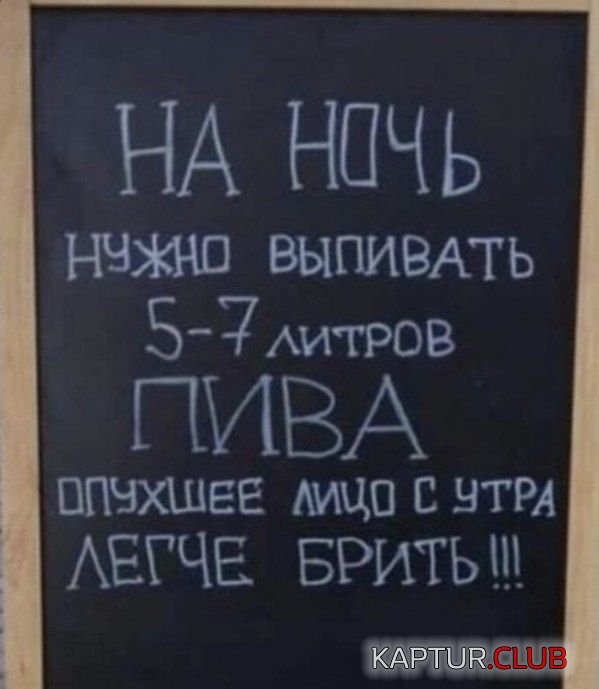 НА НОЧЬ
НУЖНО ВЫПИВАТЬ
5-7 ЛИТРОВ
ПИВА
ОПУХШЕЕ ЛИЦО С УТРА
ЛЕГЧЕ БРИТЬ!!!
KAPTUR.CLUB